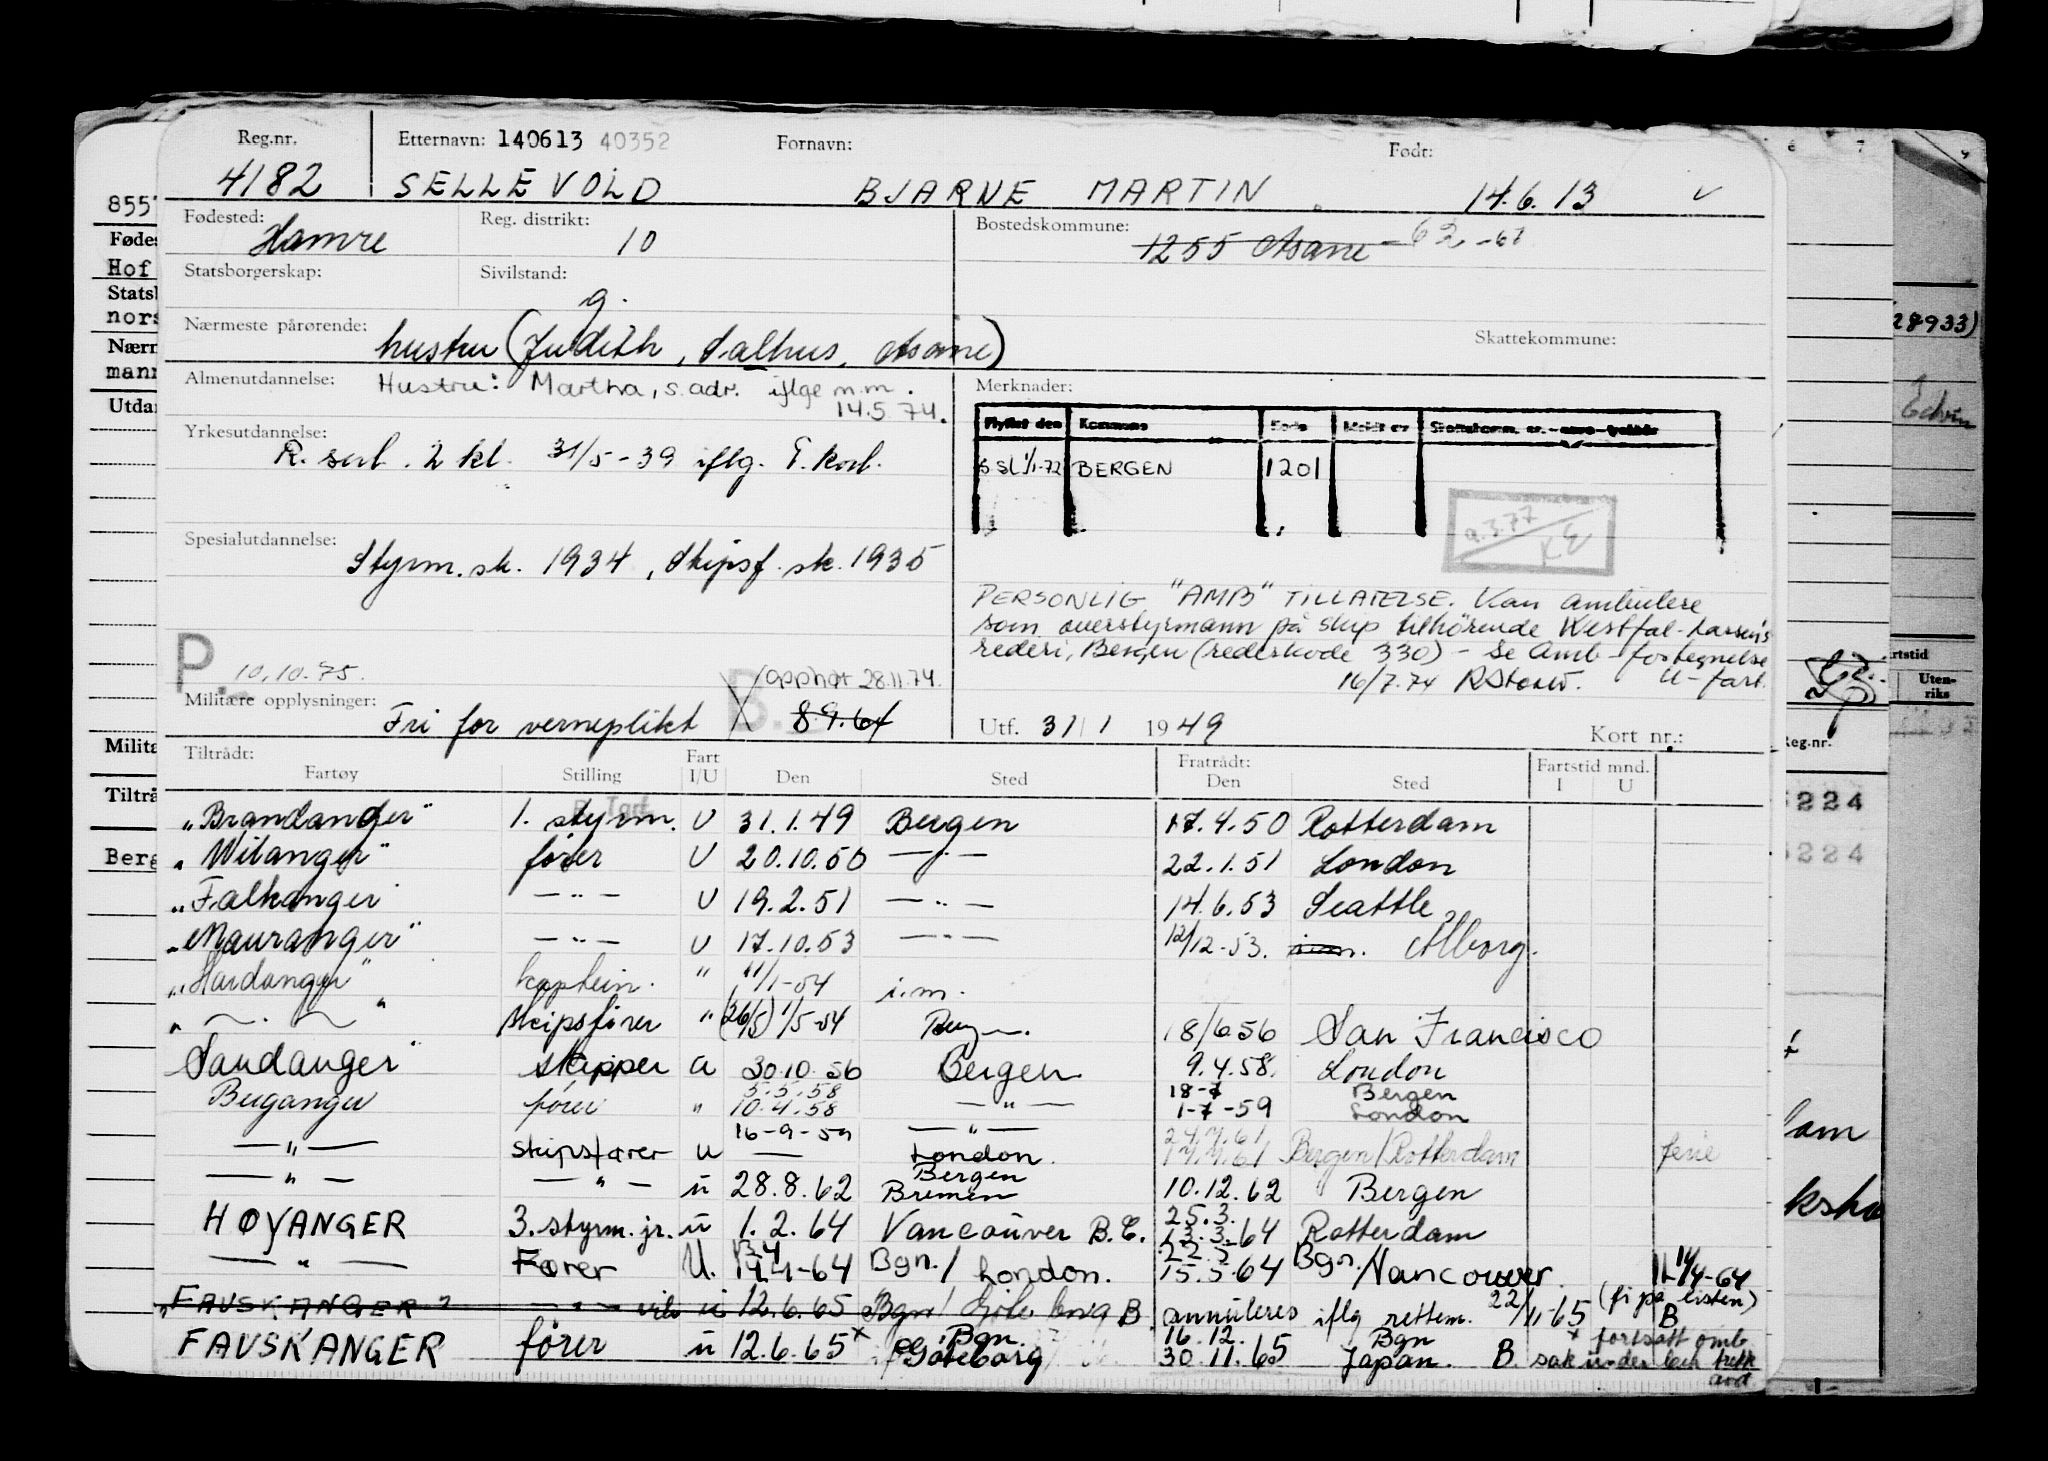 Reg.nr. Etternavn: 140613 40352 Fornavn: Født:
4182 SELLEVOLD BJARNE MARTIN 14.6.13
Fødested: Reg. distrikt: Bostedskommune:
Hamre 10 1255 Åsane -62 -67
Statsborgerskap: Sivilstand:
g.
Nærmeste pårørende: Skattekommune:
hustru (Judith, Salhus, Åsane)
Almenutdannelse: Hustru: Martha, s. adr. iflge m.m. Merknader:
14.5.74.
Flyttet den Kommune Kode Meldt nr.
Yrkesutdannelse:
R. serl. 2 kl. 31/5-39 iflg. T. korl.
1/1-72 BERGEN 1201
a.3.77
KE
Spesialutdannelse:
Styrm. sk. 1934, Skipsf. sk. 1935
PERSONLIG "AMB" TILLATELSE. Kan ambulere
som overstyrmann på skip tilhörende Westfal-Larsen's
rederi, Bergen (rederkode 330) - Se Amb-fortegnelse
16/7.74 U-fart.
P. 10.10.75. B. opphør 28.11.74.
Militære opplysninger:
Fri for verneplikt 8.9.64
Utf. 31/1 1949 Kort nr.:
Tiltrådt: Fart Fratrådt: Fartstid mnd.
Fartøy Stilling I/U Den Sted Den Sted I U
"Brandanger" 1. styrm. U 31.1.49 Bergen 17.4.50 Rotterdam
"Wilanger" fører U 20.10.50 —"— 22.1.51 London
"Falkanger" —"— U 19.2.51 —"— 14.6.53 Seattle
"Mauranger" —"— U 17.10.53 —"— 12/12-53. Ålborg.
"Hardanger" kaptein. " 11/1-54 i.m.
" — " — skipsfører " (26/5) 1/5-54 Bergen. 18/6 56 San Francisco
Sandanger" skipper U 30.10.56 Bergen. 9.4.58. London
5.5.58 18-7 Bergen
Berganger fører " 10.4.58 —"— 1-7-59 London
16-9-59 —"— 24.7.61
—"— skipsfører U — London. 17.7.61 Bergen/Rotterdam ferie
Bergen
—"— —"— u 28.8.62 Bremen 10.12.62 Bergen
25.3.
HØYANGER 3. styrm. jr. u 1.2.64 Vancouver B.C. 23.3.64 Rotterdam
13.4 22.5
—"— Fører U. 14.4-64 Bgn./London. 15.5.64 Bgn./Vancouver. 14/4-64
"FAUSKANGER" —"— 12.6.65 annuleres iflg rettem. 22/11-65 (fi på listen) B
Bgn. 16.12. Bgn fortsatt omb.
FAUSKANGER fører u 12.6.65 x Göteborg 30.11.65 Japan. B.
8557
Fødes
Hof
Statsb
nors
Nærn
mann
Utdan
Milita
Tiltrå
Berg
6 7
28933)
Edvin
rtstid
Uten-
riks
Reg.nr.
5224
5224